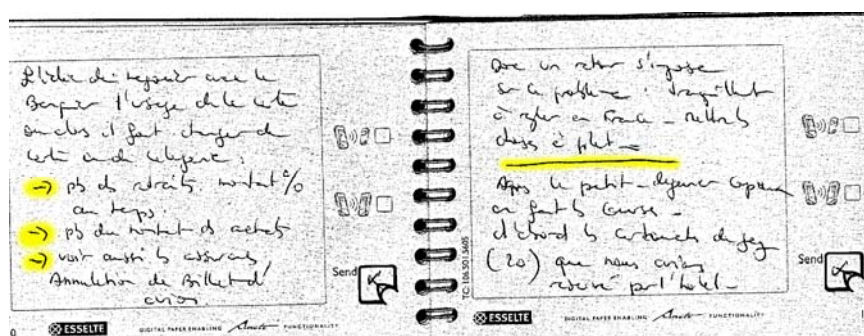 l'idée de négocier avec le
Banquier l'usage de la carte
ou alors il faut changer de
carte ou de catégorie :
→ pb des retraits. montant %
au temps.
→ pb du montant des achats
→ voir aussi les assurances,
Annulation de Billet d'
avion.
Send
ESSELTE
DIGITAL PAPER ENABLING Anoto FUNCTIONALITY
Donc un retour s'impose
sur ce problème : tranquillement
à régler en France - mettre les
choses à plat -
Après le petit-déjeuner copieux
on fait les courses -
d'abord les cartouches de gaz
(20) que nous avions
réservé par l'hotel -
Send
TC: 1063015605
ESSELTE
DIGITAL PAPER ENABLING Anoto FUNCTIONALITY